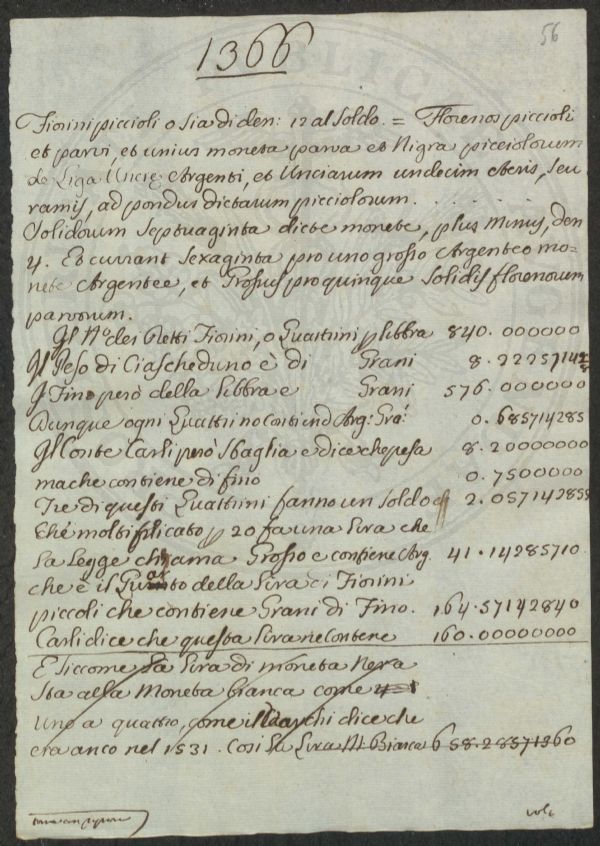 56
1366
Fiorini piccioli o sia di den: 12 al Soldo. = Florenos piccioli
et parvi, et unius moneta parva et Nigra picciolorum
de Liga Uncie Argenti, et Unciarum undecim Aeris, seu
ramis, ad pondus dictarum picciolorum. . . . . .
Solidorum Septuaginta dicte monete, plus Minus, den
4. Et currant Sexaginta pro uno grosso Argenteo mo=
nete Argentee, et Grossus pro quinque Solidis florenorum
parvorum.
Il No. dei Detti Fiorini, o Quattrini p libbra 840. 000000
Il Peso di Ciascheduno è di Grani 8. 22857142
Il Fino però della libbra è Grani 576. 000000
Dunque ogni Quattrino contiene Arg: Gra: 0. 685714285
Il Conte Carli però Sbaglia e dice che pesa 8. 20000000
ma che contiene di fino 0. 7500000
Tre di questi Quattrini fanno un Soldo di 2. 057142855
Che moltiplicato p 20 fa una Lira che
la Legge chiama Grosso e contiene Arg. 41. 14285710
che è il della Lira di Fiorini
piccoli che contiene Grani di Fino. 164. 57142840
Carli dice che questa Lira ne contiene 160. 00000000
E siccome la Lira di moneta Nera
sta alla Moneta bianca come
Uno a quattro, come il Varchi dice che
era anco nel 1531. Cosi la Lira M. Bianca 658. 28571360